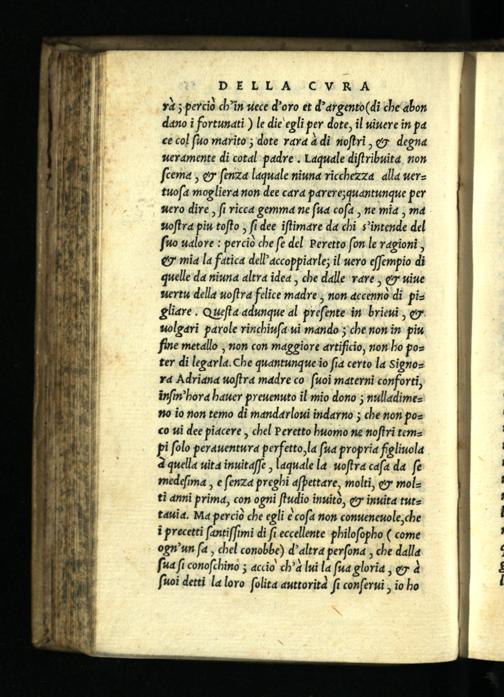 DELLA CVRA
rà; perciò ch'in uece d'oro et d'argento(di che abon
dano i fortunati) le die egli per dote, il uiuere in pa
ce col suo marito; dote rara à di nostri, & degna
ueramente di cotal padre. Laquale distribuita non
scema, & senza laquale niuna ricchezza alla uer-
tuosa mogliera non dee cara parere;quantunque per
uero dire, si ricca gemma ne sua cosa, ne mia, ma
uostra piu tosto, si dee istimare da chi s'intende del
suo ualore: perciò che se del Peretto son le ragioni,
& mia la fatica dell'accoppiarle; il uero essempio di
quelle da niuna altra idea, che dalle rare, & uiue
uertu della uostra felice madre, non accennò di pi-
gliare. Questa adunque al presente in brieui, &
uolgari parole rinchiusa ui mando; che non in piu
fine metallo, non con maggiore artificio, non ho po-
ter di legarla. Che quantunque io sia certo la Signo-
ra Adriana uostra madre co suoi materni conforti,
insin'hora hauer preuenuto il mio dono; nulladime-
no io non temo di mandarloui indarno; che non po-
co ui dee piacere, chel Peretto huomo ne nostri tem-
pi solo perauentura perfetto,la sua propria figliuola
à quella uita inuitasse, laquale la uostra casa da se
medesima, e senza preghi aspettare, molti, & mol-
ti anni prima, con ogni studio inuitò, & inuita tut-
tauia. Ma perciò che egli è cosa non conueneuole,che
i precetti santissimi di si eccellente philosopho (come
ogn'un sa, chel conobbe) d'altra persona, che dalla
sua si conoschino; acciò ch'à lui la sua gloria, & à
suoi detti la loro solita auttorità si conserui, io ho